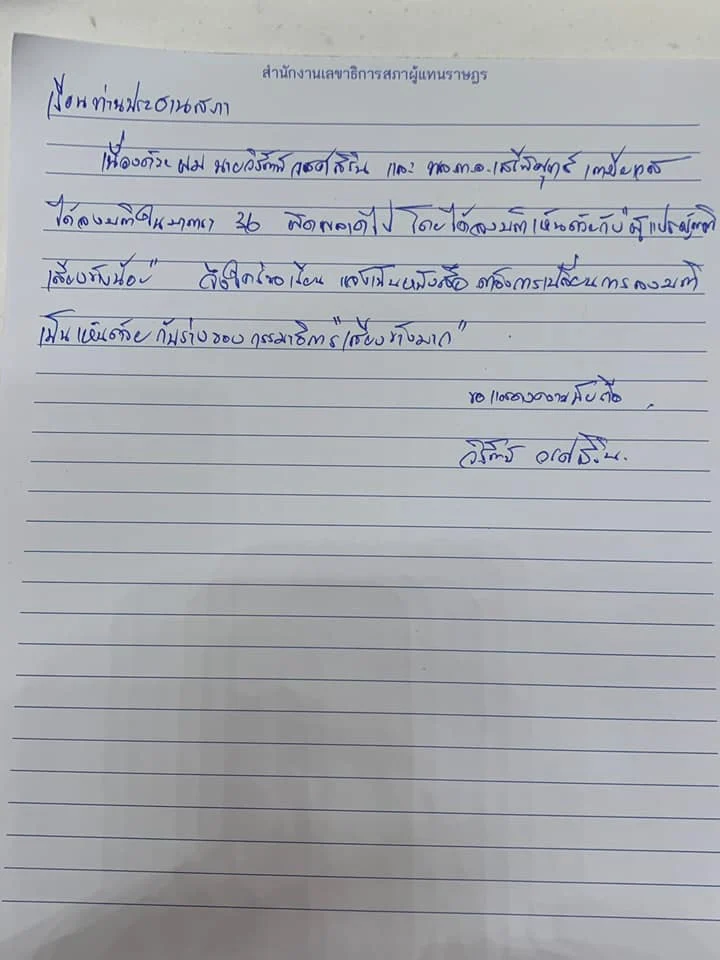 สำนักงานเลขาธิการสภาผู้แทนราษฎร
เรียนท่านประธานสภา
เนื่องด้วย ผม นายวิรัตน์ วรศสิริน และ พล.ต.อ.เสรีพิศุทธ์ เตมียเวส
ได้ลงมติในมาตรา 36 ผิดพลาดไป โดยได้ลงมติเห็นด้วยกับ "ผู้แปรญัตติ
เสียงข้างน้อย" จึงใคร่ขอเรียน แจ้งเป็นหนังสือ ต้องการเปลี่ยนการลงมติ
เป็น เห็นด้วย กับร่างของ กรรมาธิการ "เสียงข้างมาก"
ขอแสดงความนับถือ
วิรัตน์ วรศสิริน